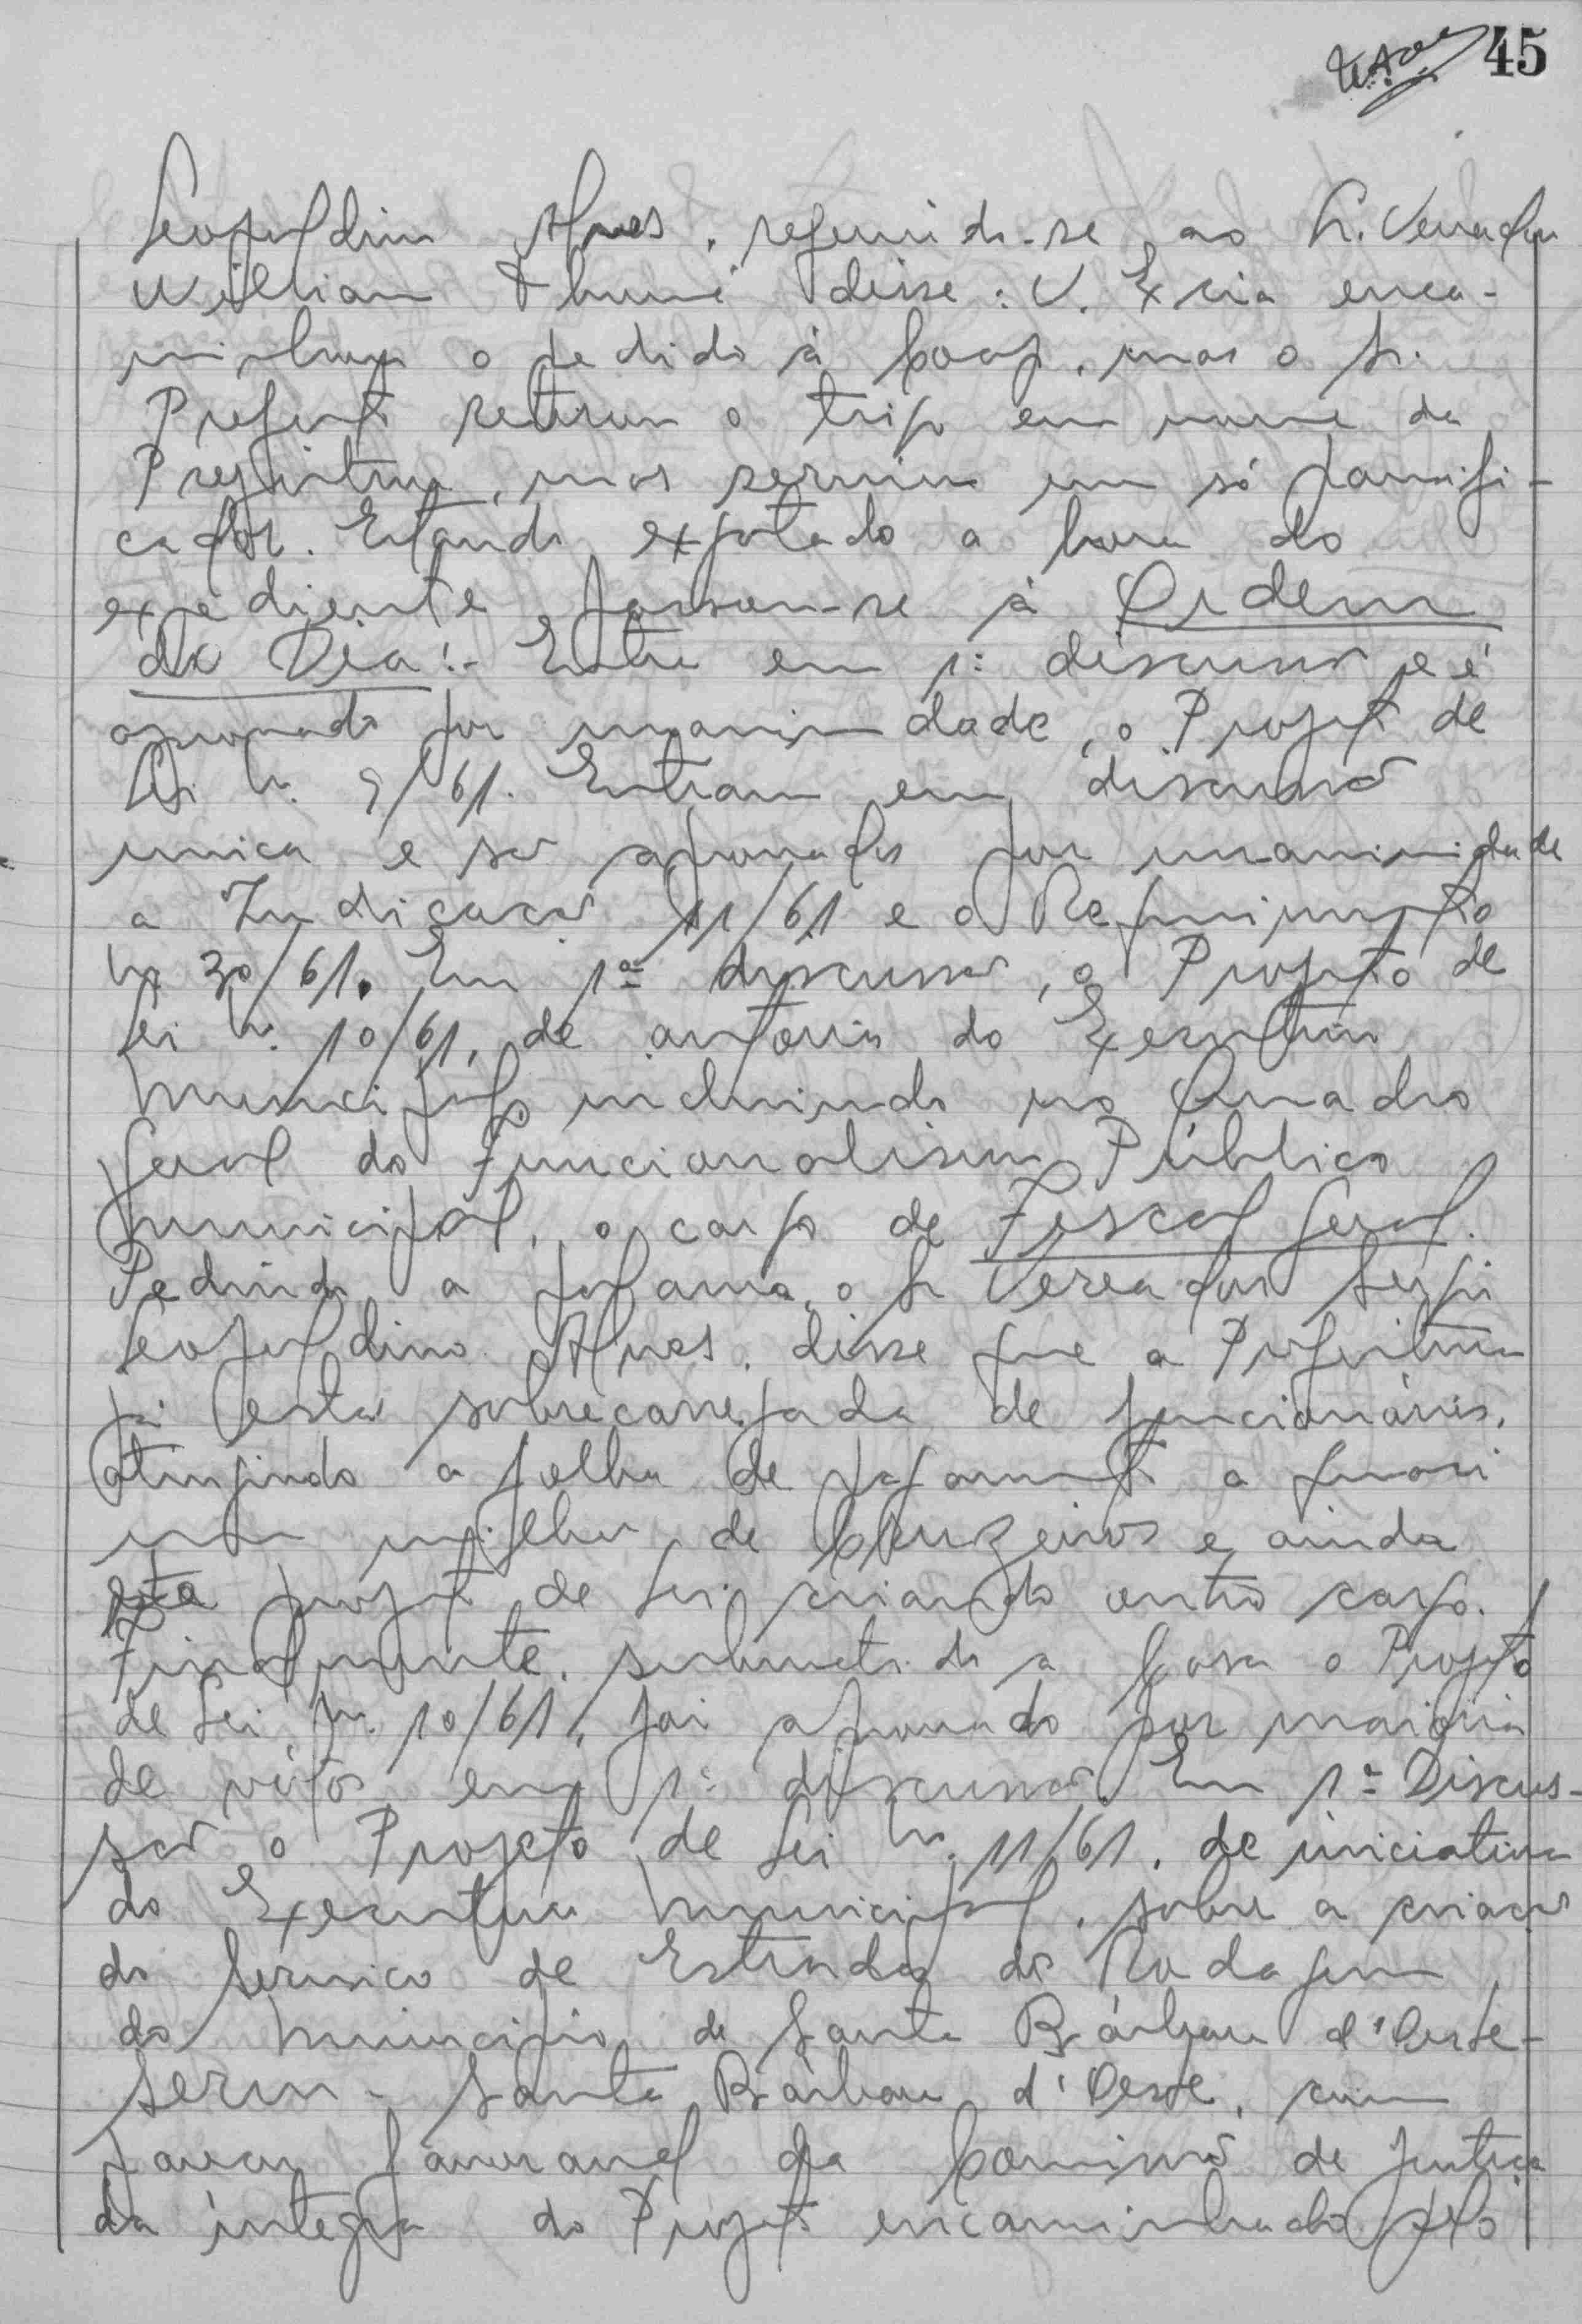 45
Leopoldino Alves, referindo-se ao Sr. Vereador
Willian Thumé disse: V. Excia enca-
minhou o pedido à Coap, mas o Sr.
Prefeito retirou o trigo em nome da
Prefeitura, mas serviu um só panifi-
cador. Estando exgotado a hora do
expediente passou-se à Ordem
do Dia:- Entra em 1ª discussão e é
aprovado por unanimidade, o Projeto de
Lei nº 9/61. Entram em discussão
unica e são aprovados por unanimidade
a Indicação 11/61 e o Requerimento
nº 30/61. Em 1ª discussão, o Projeto de
Lei nº 10/61, de autoria do Executivo
Municipal, incluindo no Quadro
Geral do Funcionalismo Público
Municipal, o cargo de Fiscal Geral.
Pedindo a palavra, o Sr Vereador Sergio
Leopoldino Alves, disse que a Prefeitura
já está sobrecarregada de funcionários,
atingindo a folha de pagamento a quasi
um milhão de Cruzeiros e ainda
este projeto de Lei criando outro cargo.
Finalmente, submetido a Casa o Projeto
de Lei nº 10/61, foi aprovado por maioria
de vótos em 1ª discussão. Em 1ª Discus-
são o Projeto de Lei nº 11/61, de iniciativa
do Executivo Municipal, sobre a criação
do Serviço de Estradas de Rodagem
do Municipio de Santa Bárbara d'Oeste-
Serm - Santa Bárbara d'Oeste, com
parecer favoravel da Comissão de Justiça
da integra do Projeto encaminhado pelo